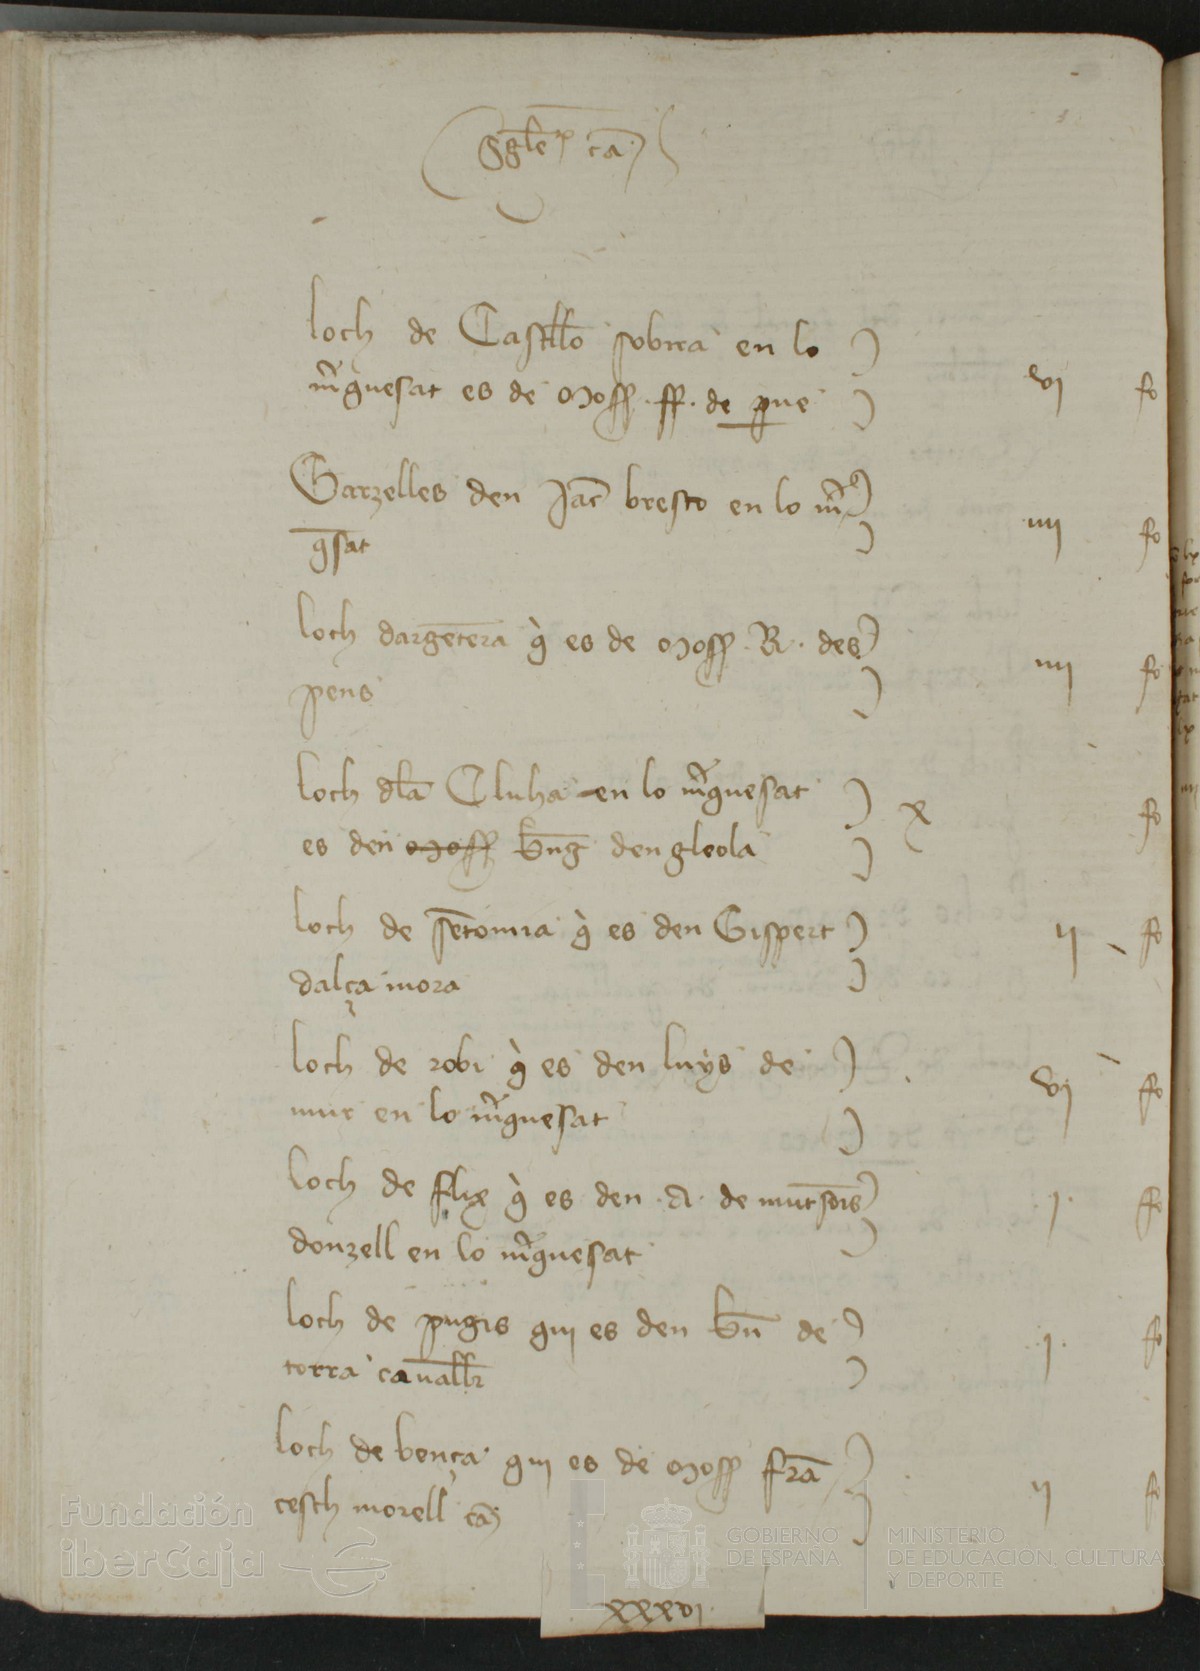 Sglẽs cã
loch de Castllo sobira en lo
mrq̃uesat es de moss. ff. de p̱ue vi fo
Garzelles den Jac̃ bresco en lo mr̃
q̃sat iiii fo
loch dargẽtera q̀ es de moss. R. des
pens iiii fo
loch dl̃a Cluha en lo mr̃quesat x fo
es den moss bñg dengleola
loch de sẽtomia q̀ es den Gispert ii fo
dalça mora
loch de robi q̀ es den luys de
mur en lo mr̃quesat vi fo
loch de flix q̀ es den .A. de mutsõis i fo
donzell en lo mr̃quesat
loch de pugis qui es den bñ de
torra cauallr̃ i fo
loch de bença qui es de moss frã
cesch morell cã ii fo
xxxvi
Fundación
iberCaja
GOBIERNO
DE ESPAÑA
MINISTERIO
DE EDUCACIÓN, CULTURA
Y DEPORTE